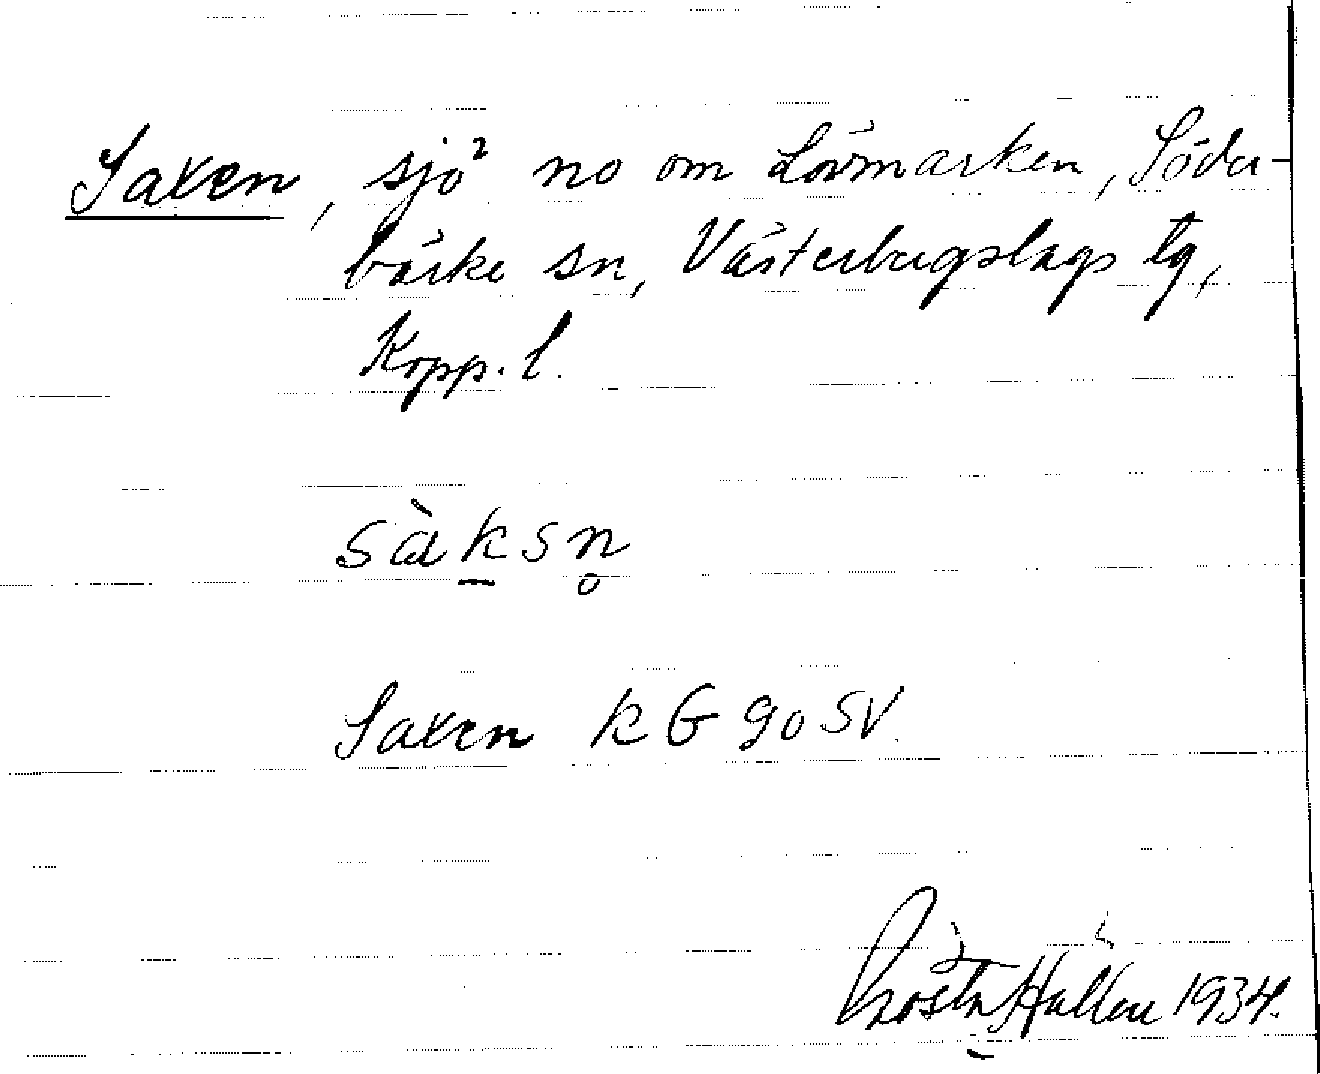 Saxen, sjö² no om Lövmarken, Söder-
bärke sn, Västerbergslags tg,
Kopp. l.
sàksn̥
Saxen k G 90 SV.
Gösta Hallén 1934.